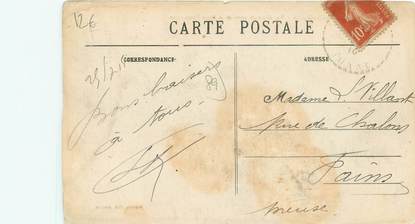 126
CARTE POSTALE
CORRESPONDANCE
ADRESSE
10c
Bons baisers
à tous
Madame Villant
Rue de Chalons
Fains
Meuse